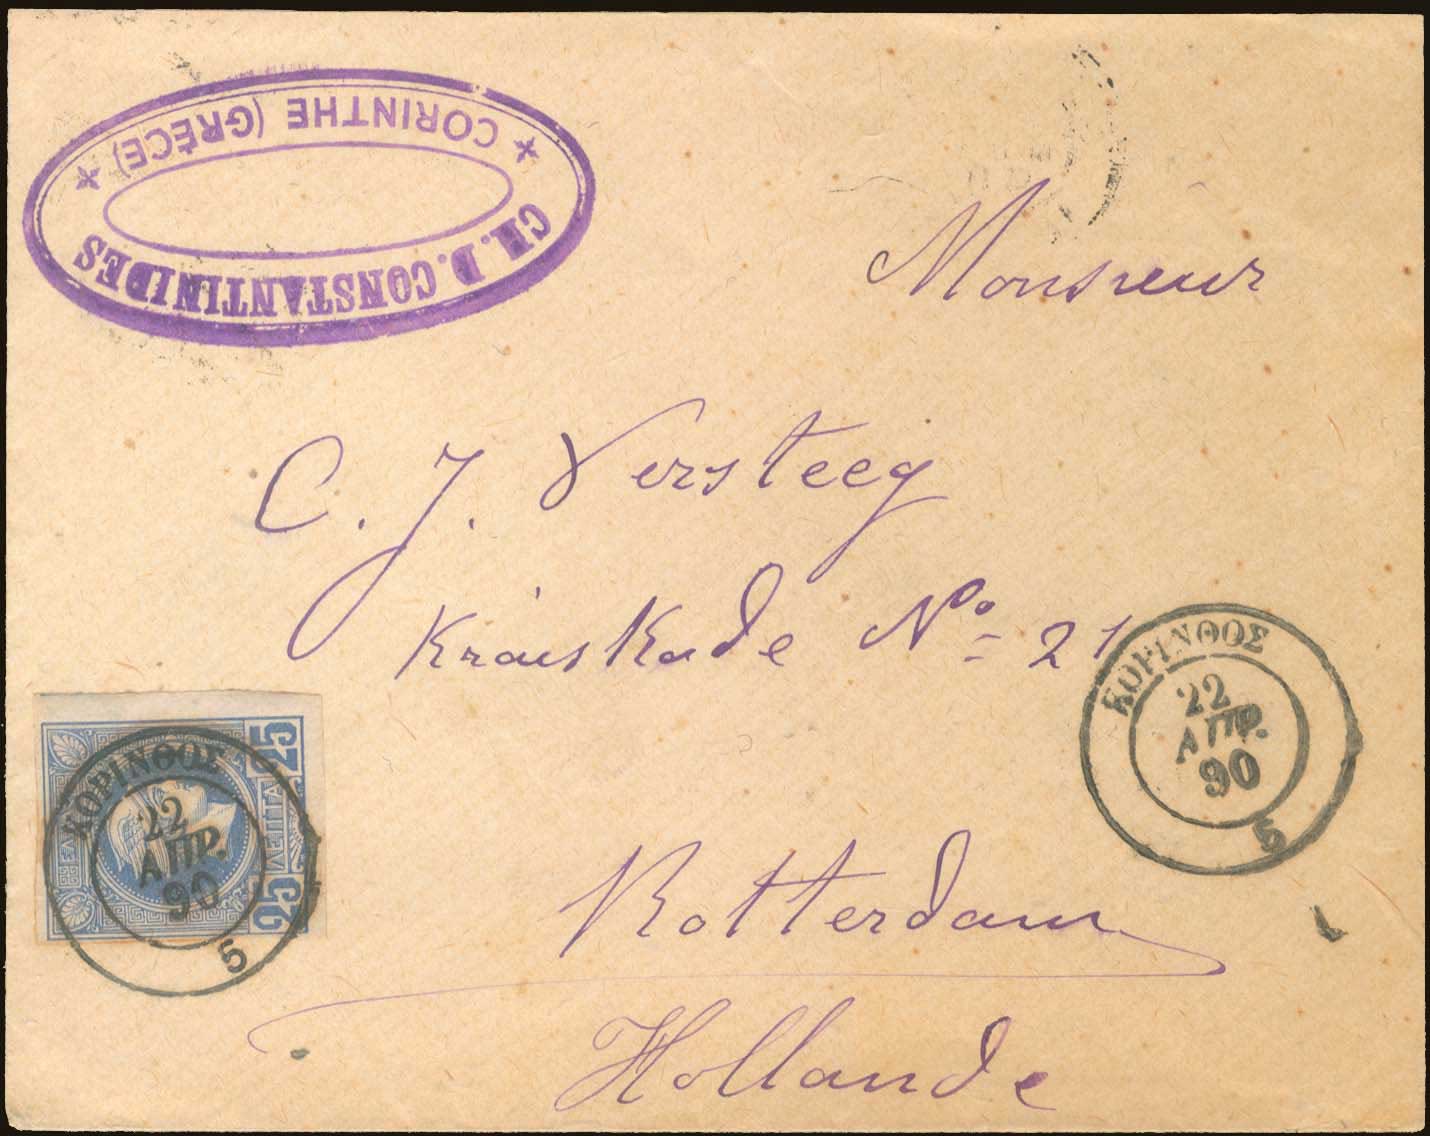 CH. D. CONSTANTINIDES
★ CORINTHE (GRÈCE) ★
Monsieur
C. J. Versteeg
Kruiskade Nº 21
Rotterdam
Hollande
ΚΟΡΙΝΘΟΣ
22
ΑΠΡ.
90
5
25 ΛΕΠΤΑ 25
ΚΟΡΙΝΘΟΣ
22
ΑΠΡ.
90
5